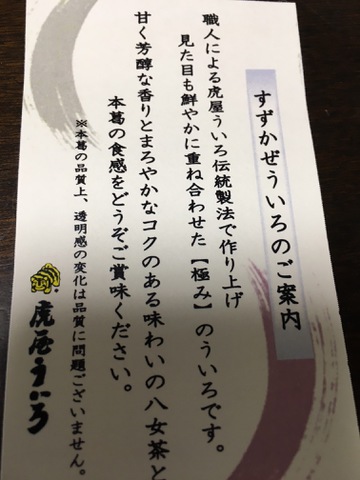 すずかぜういろのご案内
職人による虎屋ういろ伝統製法で作り上げ
見た目も鮮やかに重ね合わせた【極み】のういろです。
甘く芳醇な香りとまろやかなコクのある味わいの八女茶と
本葛の食感をどうぞご賞味ください。
※本葛の品質上、透明感の変化は品質に問題ございません。
虎屋ういろ